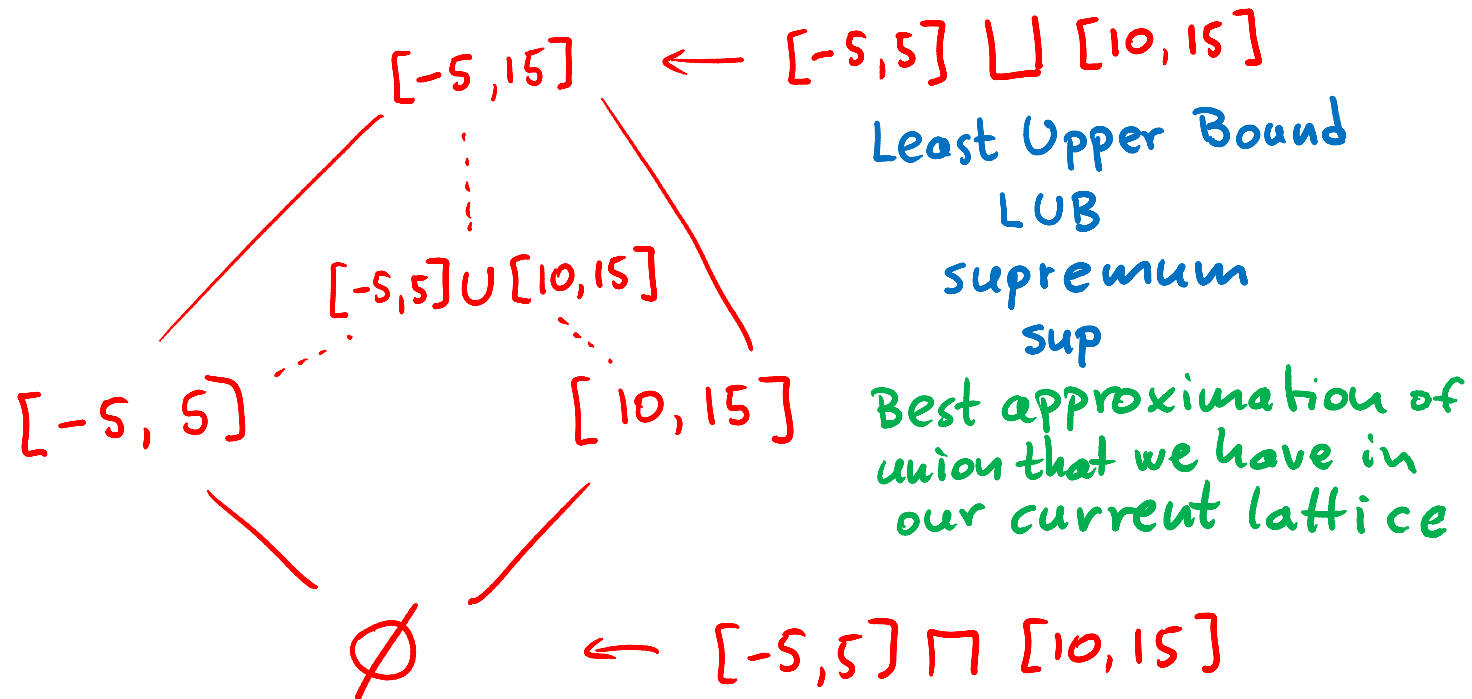 [-5,15] ← [-5,5] ⊔ [10,15]
Least Upper Bound
LUB
[-5,5] ∪ [10,15]
supremum
sup
[-5, 5]
[10, 15]
Best approximation of
union that we have in
our current lattice
∅ ← [-5,5] ⊓ [10,15]